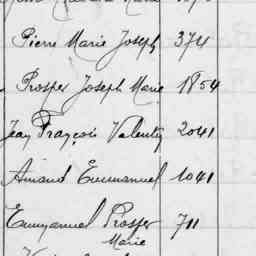 Pierre Marie Joseph 374
Prosper Joseph Marie 1854
Jean Françcois Valentin 2041
Amand Emmanuel 1041
Emmanuel Prosper 711
Marie